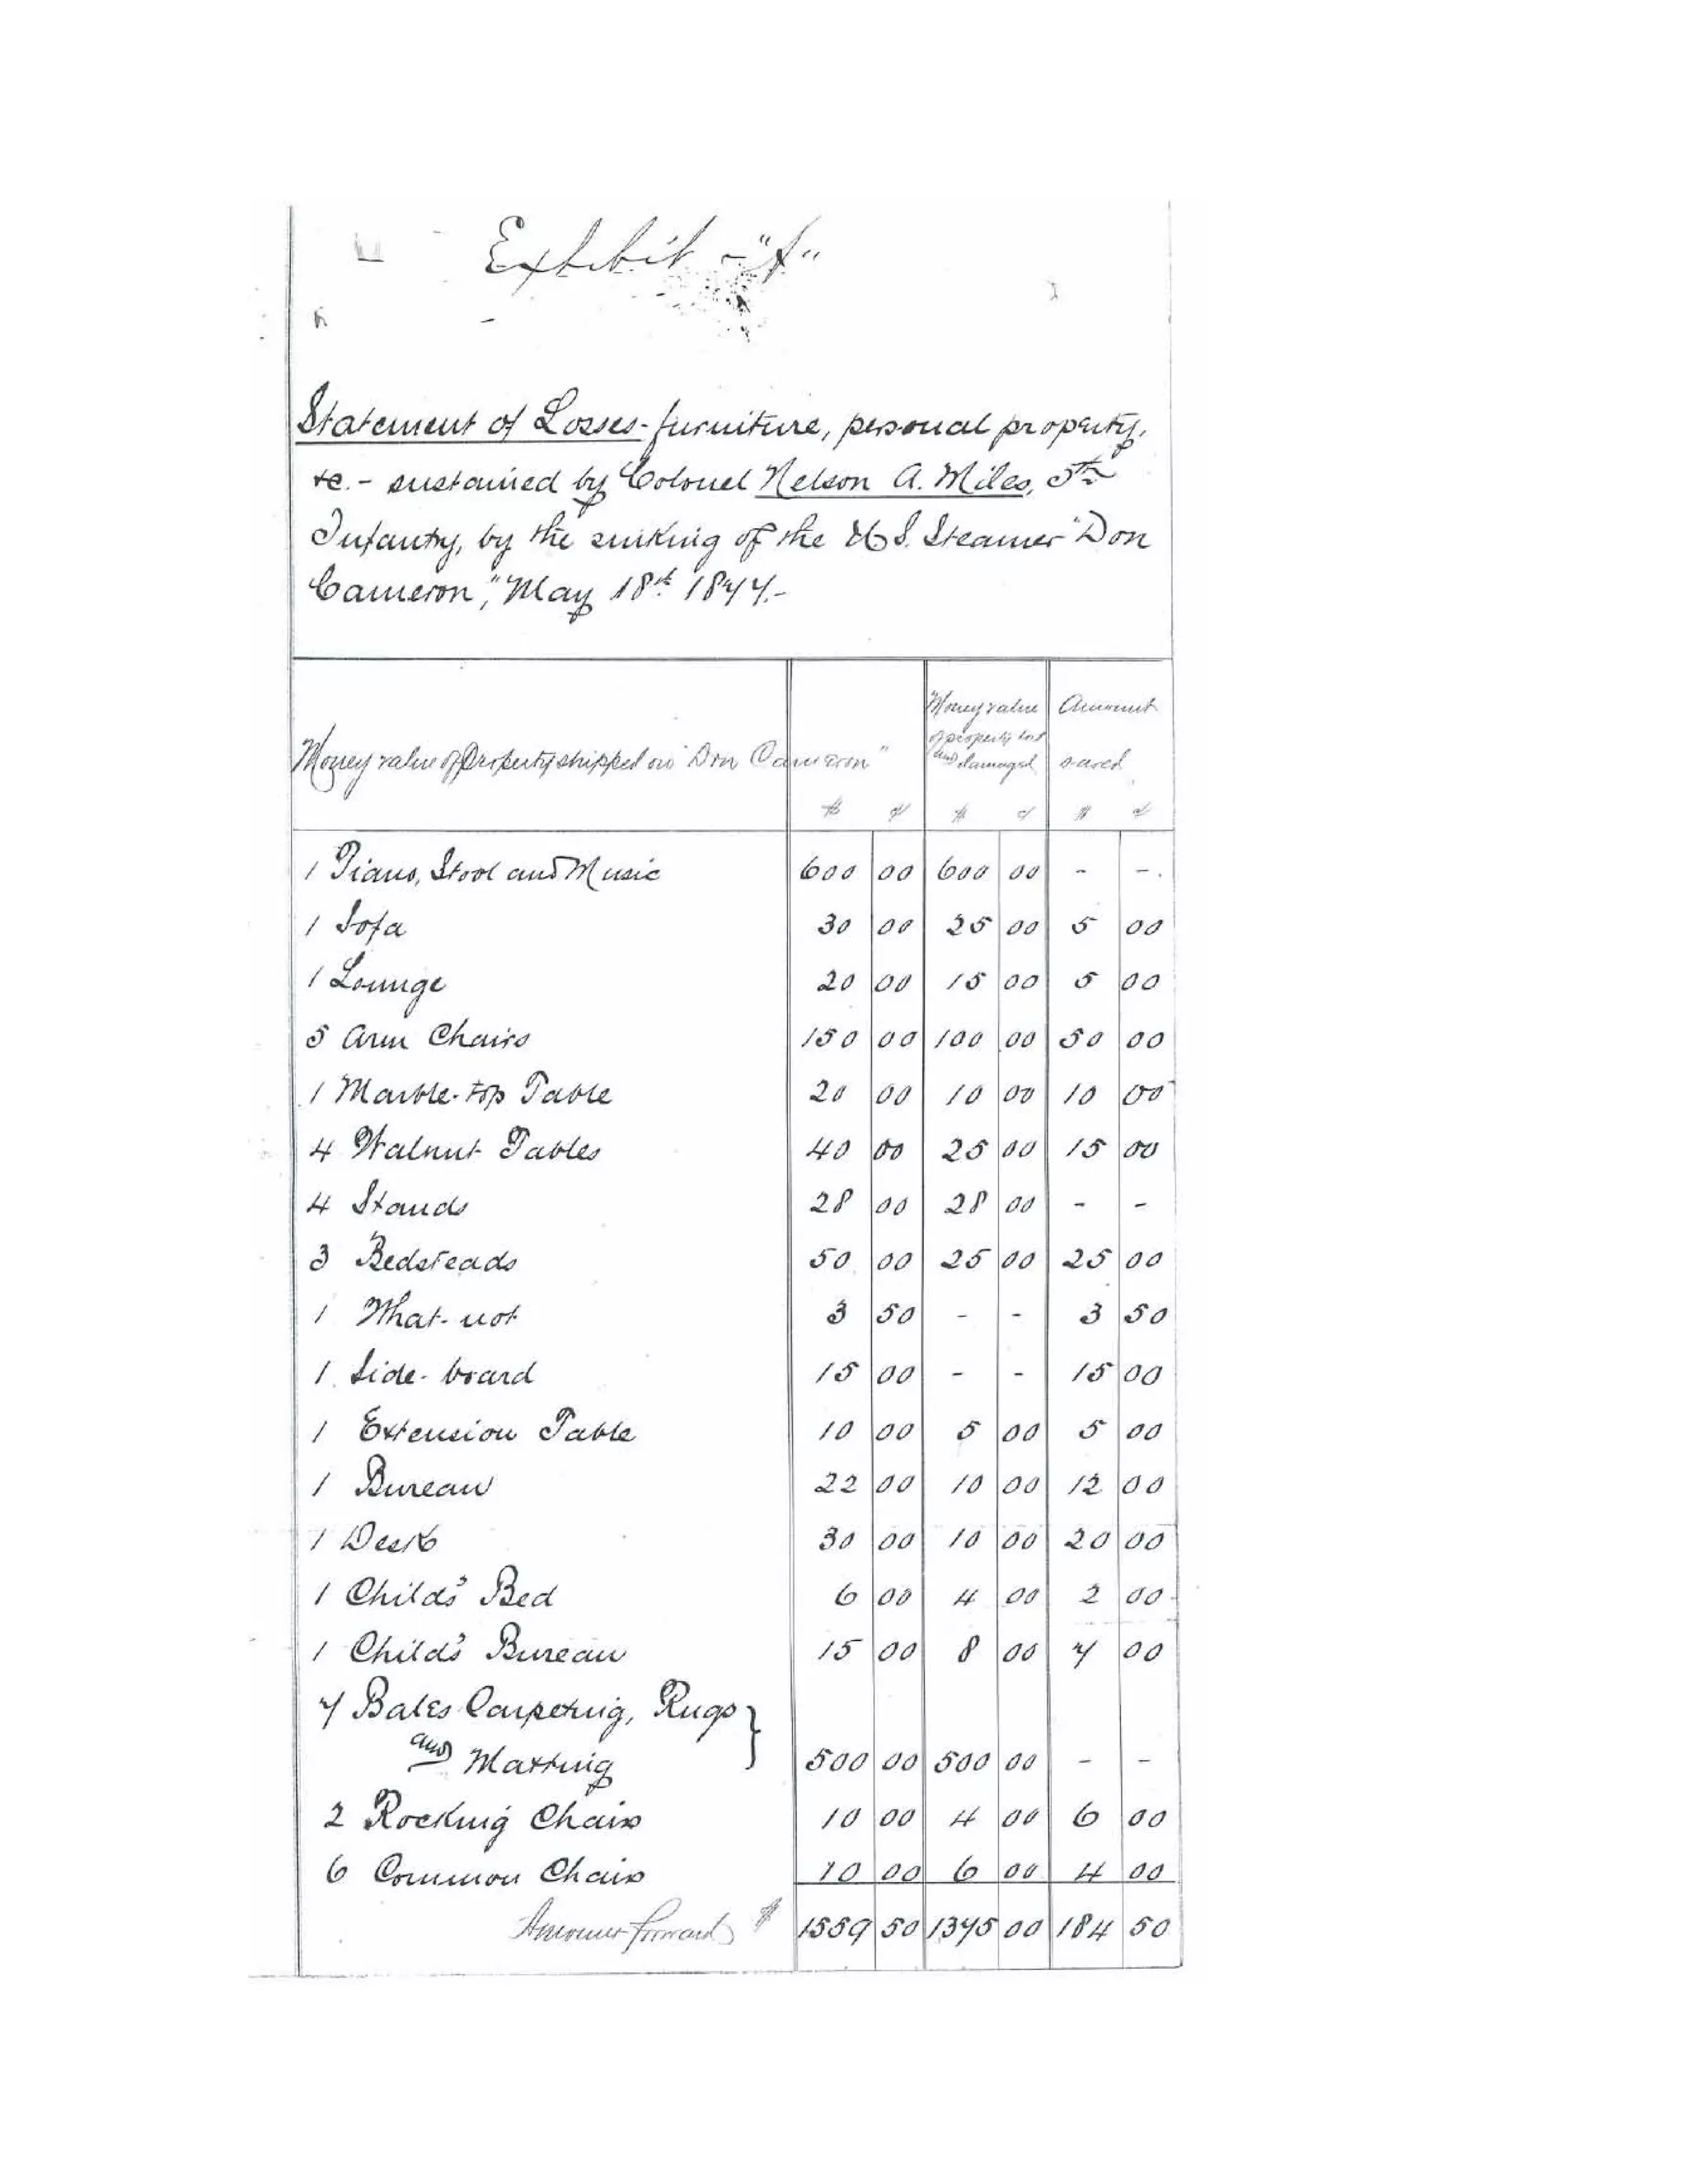 Exhibit - "A"
Statement of Losses - furniture, personal property,
&c. - sustained by Colonel Nelson A. Miles, 5th
Infantry, by the sinking of the U.S. Steamer "Don
Cameron," May 18th 1877.-
Money value of Property shipped on "Don Cameron" $ ¢ Money value of property lost and damaged $ ¢ Amount saved $ ¢
1 Piano, Stool and Music 600 00 600 00 - -
1 Sofa 30 00 25 00 5 00
1 Lounge 20 00 15 00 5 00
5 Arm Chairs 150 00 100 00 50 00
1 Marble-top Table 20 00 10 00 10 00
4 Walnut Tables 40 00 25 00 15 00
4 Stands 28 00 28 00 - -
3 Bedsteads 50 00 25 00 25 00
1 What-not 3 50 - - 3 50
1 Side-board 15 00 - - 15 00
1 Extension Table 10 00 5 00 5 00
1 Bureau 22 00 10 00 12 00
1 Desk 30 00 10 00 20 00
1 Child's Bed 6 00 4 00 2 00
1 Child's Bureau 15 00 8 00 7 00
7 Bales Carpeting, Rugs }
and Matting 500 00 500 00 - -
2 Rocking Chairs 10 00 4 00 6 00
6 Common Chairs 10 00 6 00 4 00
Amount forward $ 1559 50 1375 00 184 50